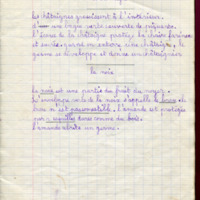 Les châtaignes grossissent à l'intérieur
d'une bogue verte couverte de piquants.
L'écorce de la châtaigne protège la chair farineuse
et sucrée, quand on enterre une châtaigne, le
germe se développe et donne un châtaignier
la noix
La noix est une partie du fruit du noyer.
L'enveloppe verte de la noix s'appelle le brou. Le
brou n'est pas comestible. L'amande est protégée
par 2 coquilles dures comme du bois.
L'amande abrite un germe.